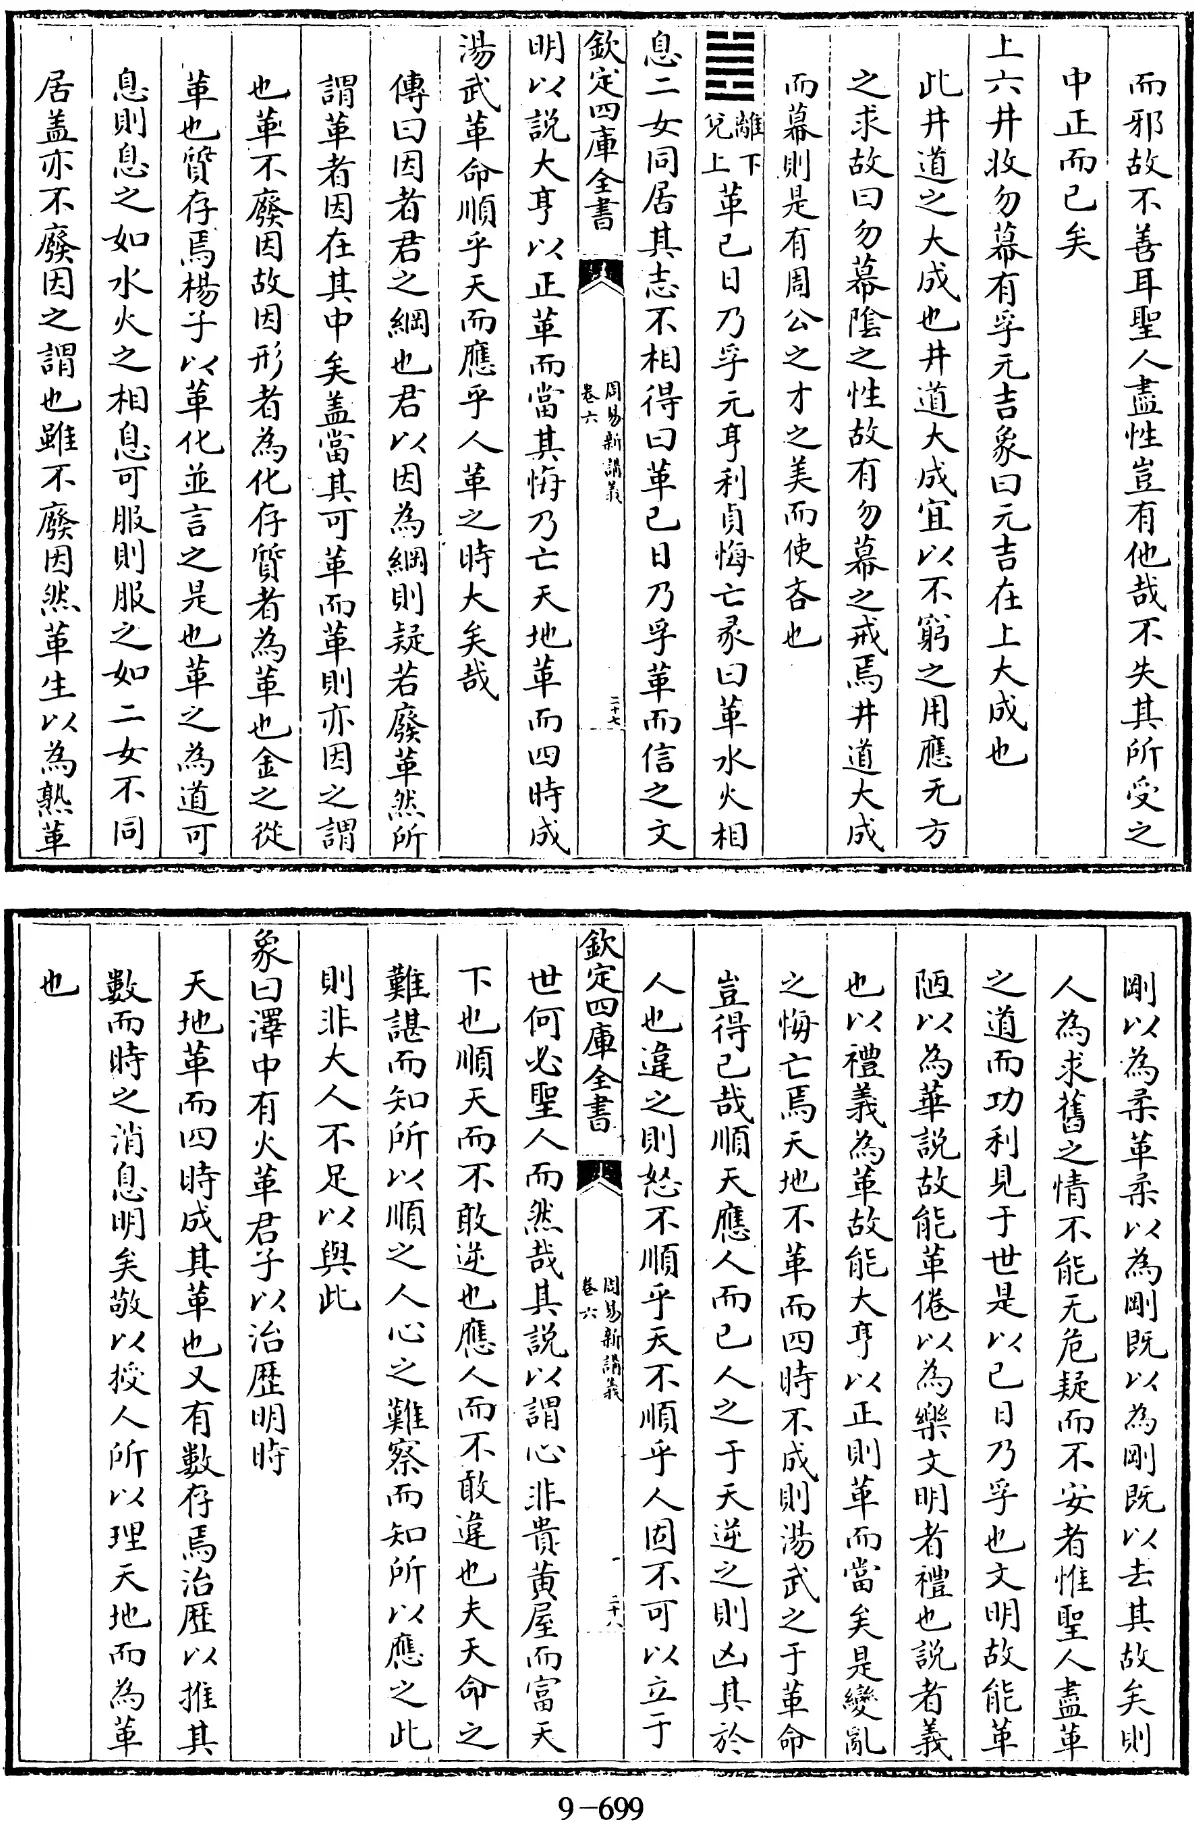 而邪故不善耳聖人盡性豈有他哉不失其所受之
中正而已矣
上六井收勿幕有孚元吉象曰元吉在上大成也
此井道之大成也井道大成宜以不窮之用應无方
之求故曰勿幕陰之性故有勿幕之戒焉井道大成
而幕則是有周公之才之美而使吝也
䷰離下兌上革已日乃孚元亨利貞悔亡彖曰革水火相
息二女同居其志不相得曰革已日乃孚革而信之文
欽定四庫全書 周易新講義 卷六 二十七
明以説大亨以正革而當其悔乃亡天地革而四時成
湯武革命順乎天而應乎人革之時大矣哉
傳曰因者君之綱也君以因為綱則疑若廢革然所
謂革者因在其中矣盖當其可革而革則亦因之謂
也革不廢因故因形者為化存質者為革也金之從
革也質存焉楊子以革化並言之是也革之為道可
息則息之如水火之相息可服則服之如二女不同
居盖亦不廢因之謂也雖不廢因然革生以為熟革
剛以為柔革柔以為剛既以為剛既以去其故矣則
人為求舊之情不能无危疑而不安者惟聖人盡革
之道而功利見于世是以已日乃孚也文明故能革
陋以為華説故能革倦以為樂文明者禮也説者義
也以禮義為革故能大亨以正則革而當矣是變亂
之悔亡焉天地不革而四時不成則湯武之于革命
豈得已哉順天應人而已人之于天逆之則凶其於
人也違之則怒不順乎天不順乎人因不可以立于
欽定四庫全書 周易新講義 卷六 二十八
世何必聖人而然哉其説以謂心非貴黄屋而富天
下也順天而不敢逆也應人而不敢違也夫天命之
難諶而知所以順之人心之難察而知所以應之此
則非大人不足以與此
象曰澤中有火革君子以治歷明時
天地革而四時成其革也又有數存焉治歷以推其
數而時之消息明矣敬以授人所以理天地而為革
也
9-699